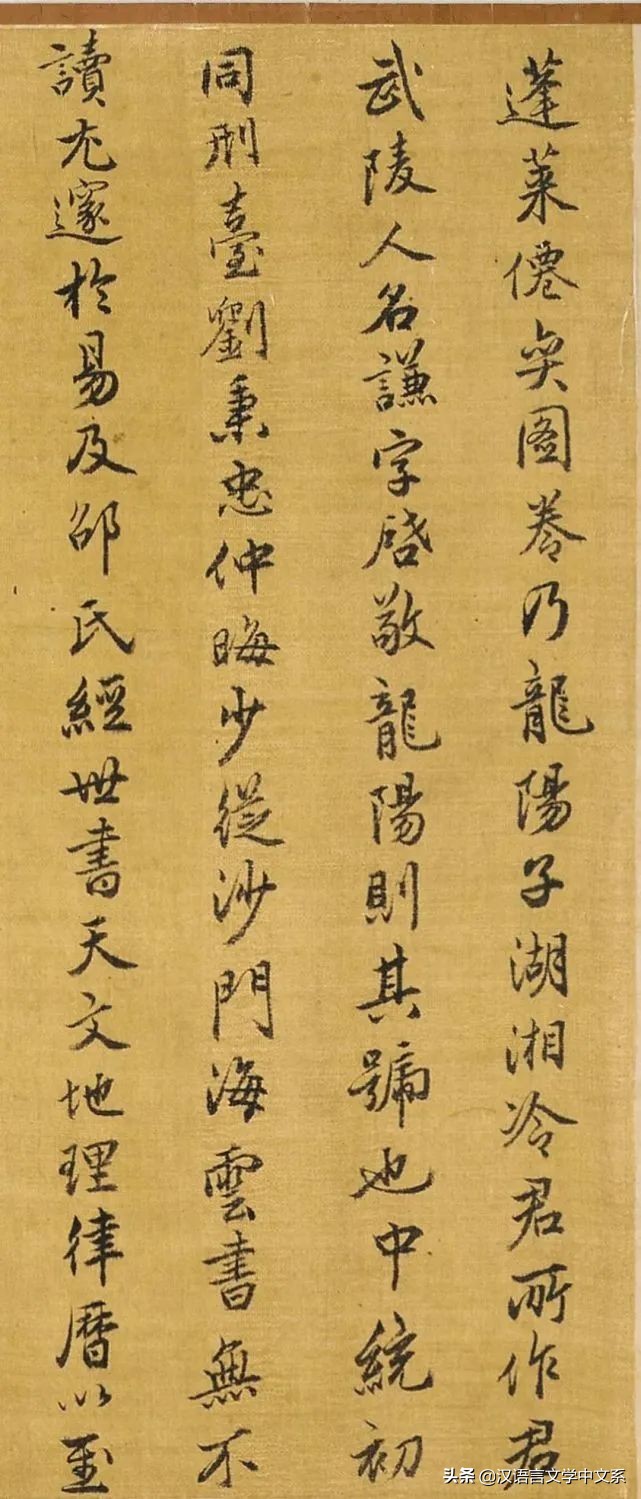 蓬萊僊奕圖卷乃龍陽子湖湘冷君所作君
武陵人名謙字啓敬龍陽則其號也中統初
同刑臺劉秉忠仲晦少從沙門海雲書無不
讀尤邃於易及邵氏經世書天文地理律曆以至
头条 @汉语言文学中文系